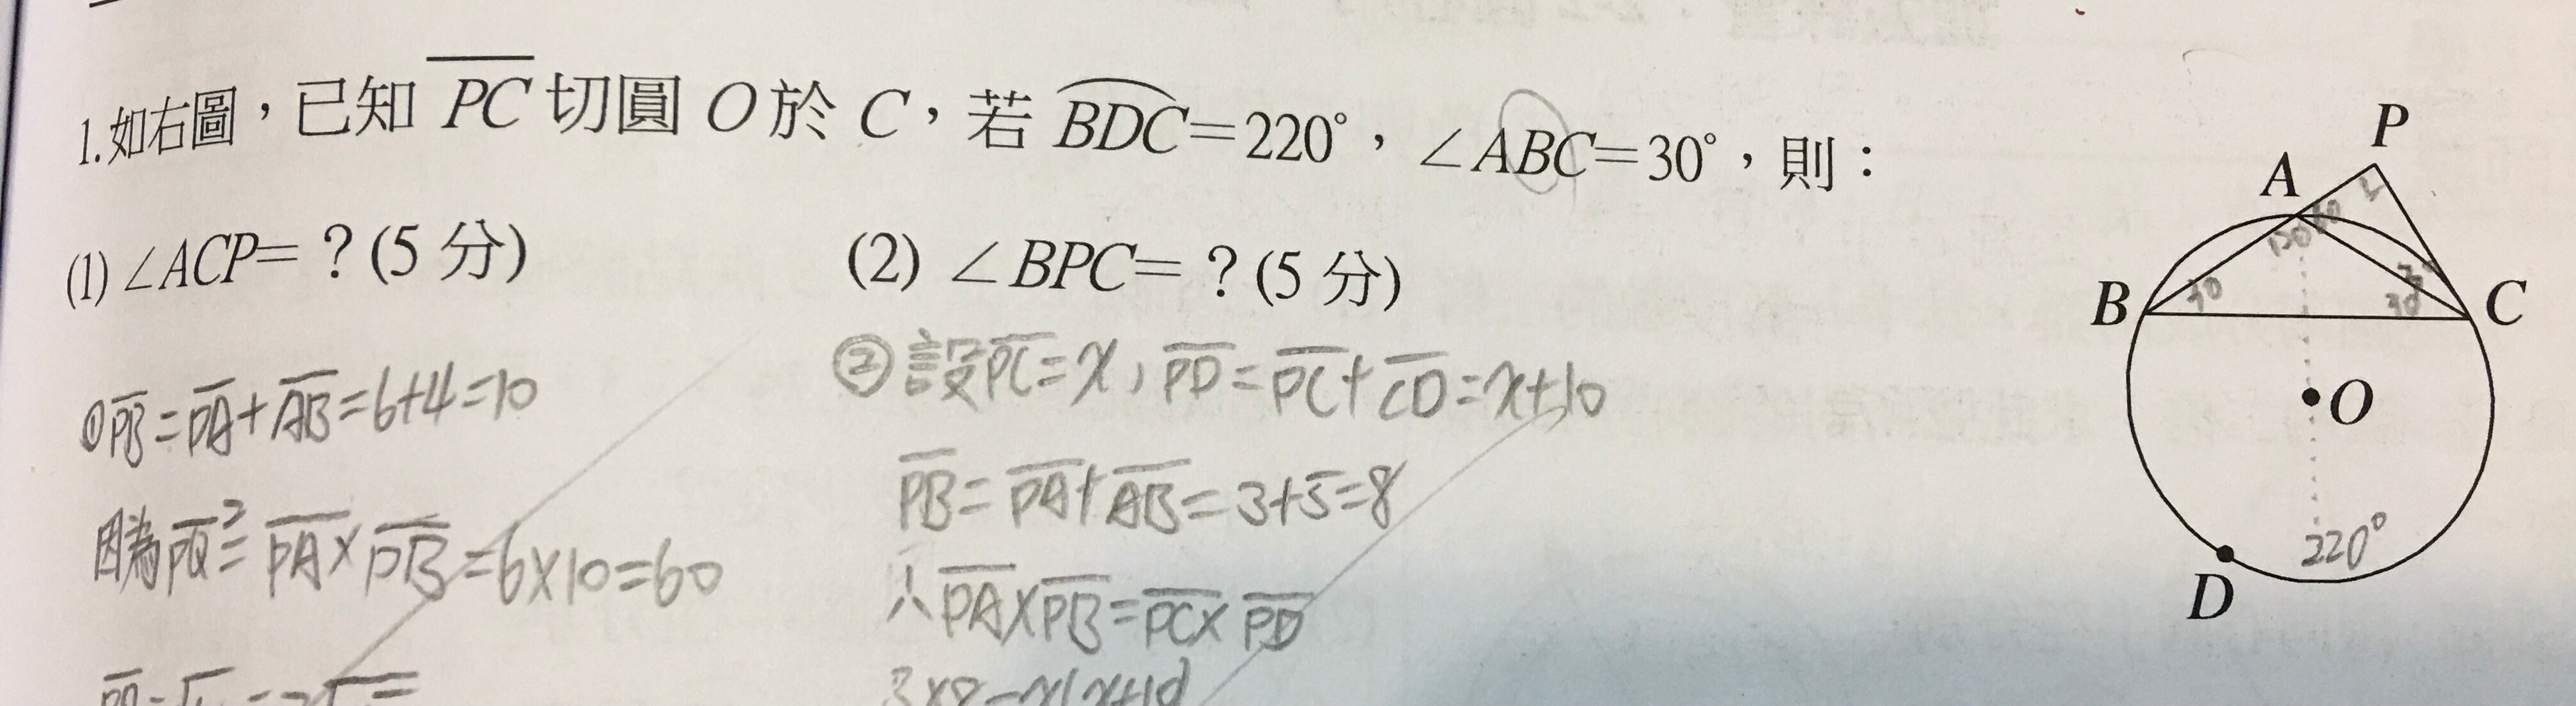 1.如右圖，已知 PC 切圓 O 於 C，若 BDC=220°，∠ABC=30°，則：
(1) ∠ACP=？(5 分) (2) ∠BPC=？(5 分)
①PB=PA+AB=6+4=10
因為PQ²=PA×PB=6×10=60
②設PC=x，PD=PC+CD=x+10
PB=PA+AB=3+5=8
PA×PB=PC×PD
3×8=x(x+10)
P
A
60
120
B
30
30
C
O
220°
D